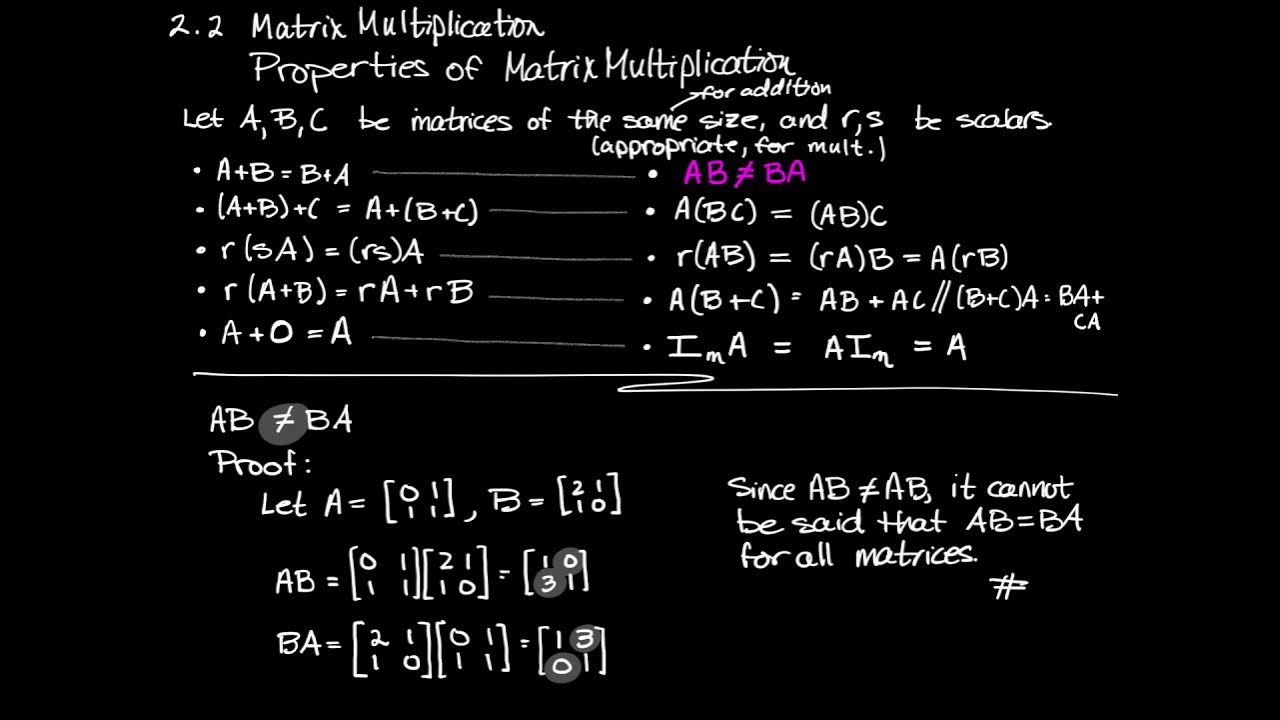 2.2 Matrix Multiplication
Properties of Matrix Multiplication
for addition
Let A, B, C be matrices of the same size, and r, s be scalars.
(appropriate, for mult.)
• A+B = B+A • AB ≠ BA
• (A+B)+C = A+(B+C) • A(BC) = (AB)C
• r(sA) = (rs)A • r(AB) = (rA)B = A(rB)
• r(A+B) = rA+rB • A(B+C) = AB + AC // (B+C)A = BA+
CA
• A+0 = A • ImA = AIn = A
AB ≠ BA
Proof:
Let A = [0 1 1 1], B = [2 1 1 0]
AB = [0 1 1 1][2 1 1 0] = [1 0 3 1]
BA = [2 1 1 0][0 1 1 1] = [1 3 0 1]
Since AB ≠ AB, it cannot
be said that AB = BA
for all matrices.
#